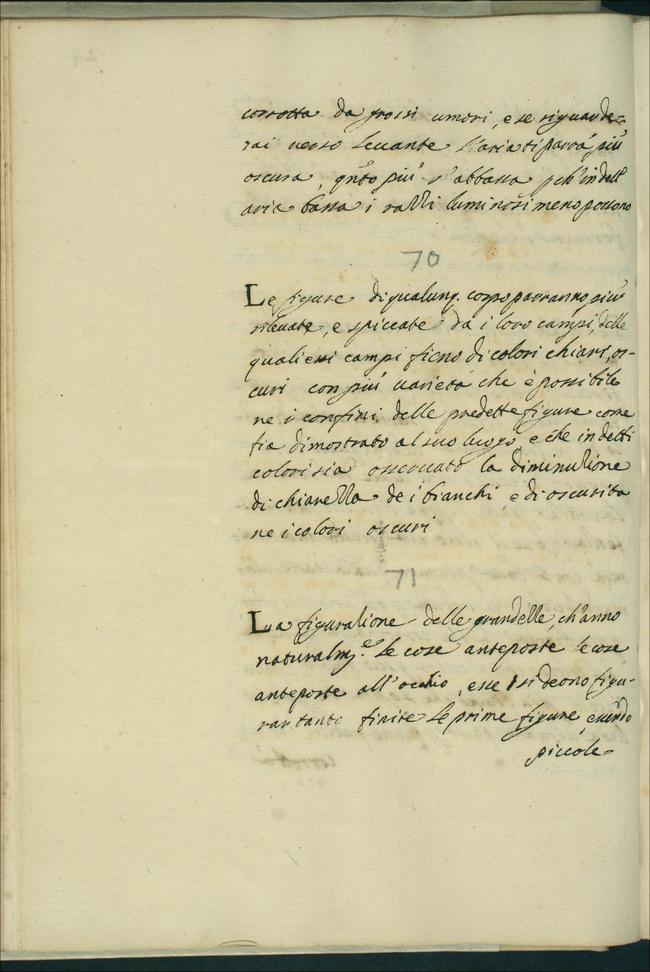 corrotta da grossi umori, e se riguarde-
rai verso levante l'aria ti parrà più
oscura, qnto più s'abbassa pch'in dett'
aria bassa i razzi luminosi meno possono
70
Le figure di qualunq. corpo parranno più
rilevate, e spiccate da i loro campi, delle
quali essi campi sieno di colori chiari, os-
curi con più varietà che è possibile
ne i confini delle predette figure come
fia dimostrato al suo luogo e che in detti
colori sia osservato la diminuzione
di chiarezza de i bianchi, e di oscurita
ne i colori oscuri
71
La figurazione delle grandezze, ch'anno
naturalmte. le cose anteposte le cose
anteposte all'occhio, esse si deono figu-
rar tanto finite le prime figure, essendo
piccole